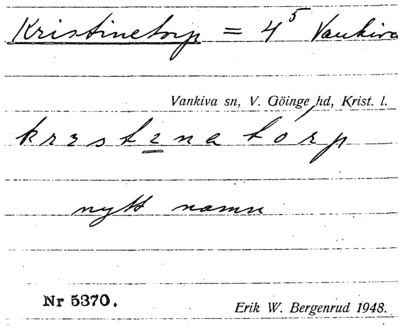 Kristinetorp = 4⁵ Vankiva
Vankiva sn, V. Göinge hd, Krist. l.
krɜstɜnatórp
nytt namn
Nr 5370.
Erik W. Bergenrud 1948.